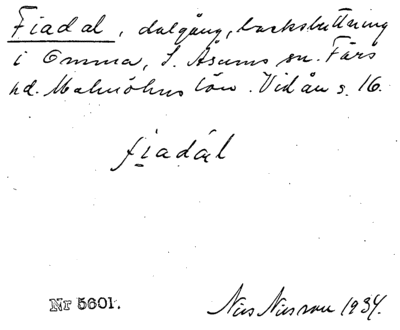 Fiadal, dalgång, backsluttning
i Omma, S. Åsums sn. Färs
hd. Malmöhus län. Vidån s. 16.
fiadál
Nr 5601.
Nils Nilsson 1934.